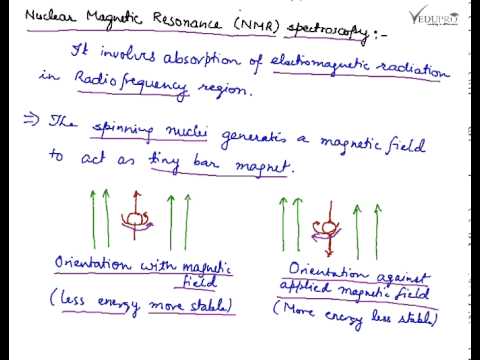 Nuclear Magnetic Resonance (NMR) spectroscopy:-
VEDUPRO
It involves absorption of electromagnetic radiation
in Radiofrequency region.
⇒ The spinning nuclei generates a magnetic field
to act as tiny bar magnet.
Orientation with magnetic
field
(less energy more stable)
Orientation against
applied magnetic field
(More energy less stable)